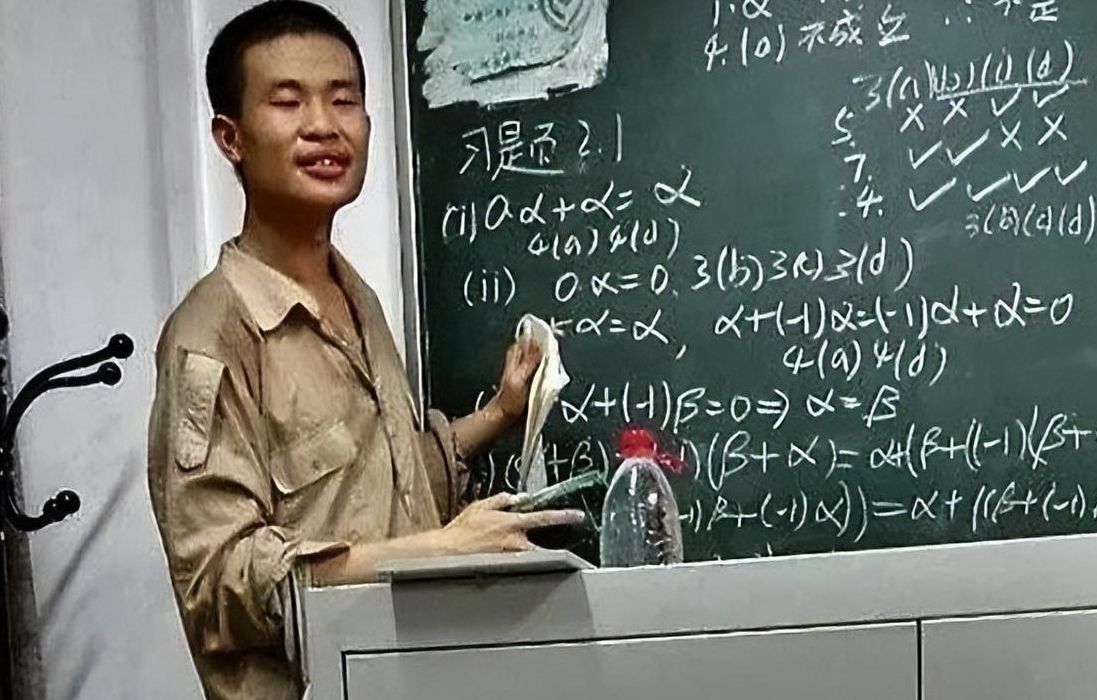 4.(a) 不成立 ∴ 不是
3(a)(b)(c)(d)
5. × × ✓ ✓
7. ✓ ✓ × ×
4. ✓ ✓ ✓ ✓
3(b)(c)(d)
习是页 2.1
(i) 0α+α=α
4(a) 4(d)
(ii) 0α=0. 3(b) 3(c) 3(d)
+α=α, α+(-1)α=(-1)α+α=0
4(a) 4(d)
α+(-1)β=0⇒α=β
+β) 1)(β+α)=α+(β+((-1)(β+
-1)β+(-1)α))=α+((β+(-1)